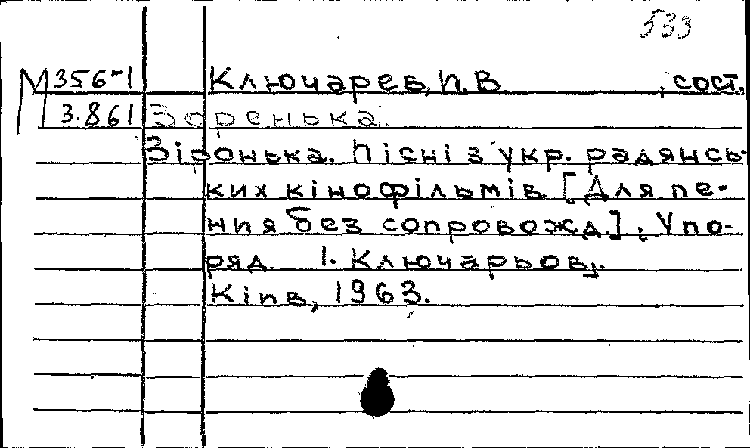 533
М 356-1 Ключарев, П. В. , сост.
3.861 Зоренька.
Зіронька. Пісні з укр. радянсь-
ких кінофільмів. [Для пе-
ния без сопровожд.]. Упо-
ряд. І. Ключарьов.
Київ, 1963.